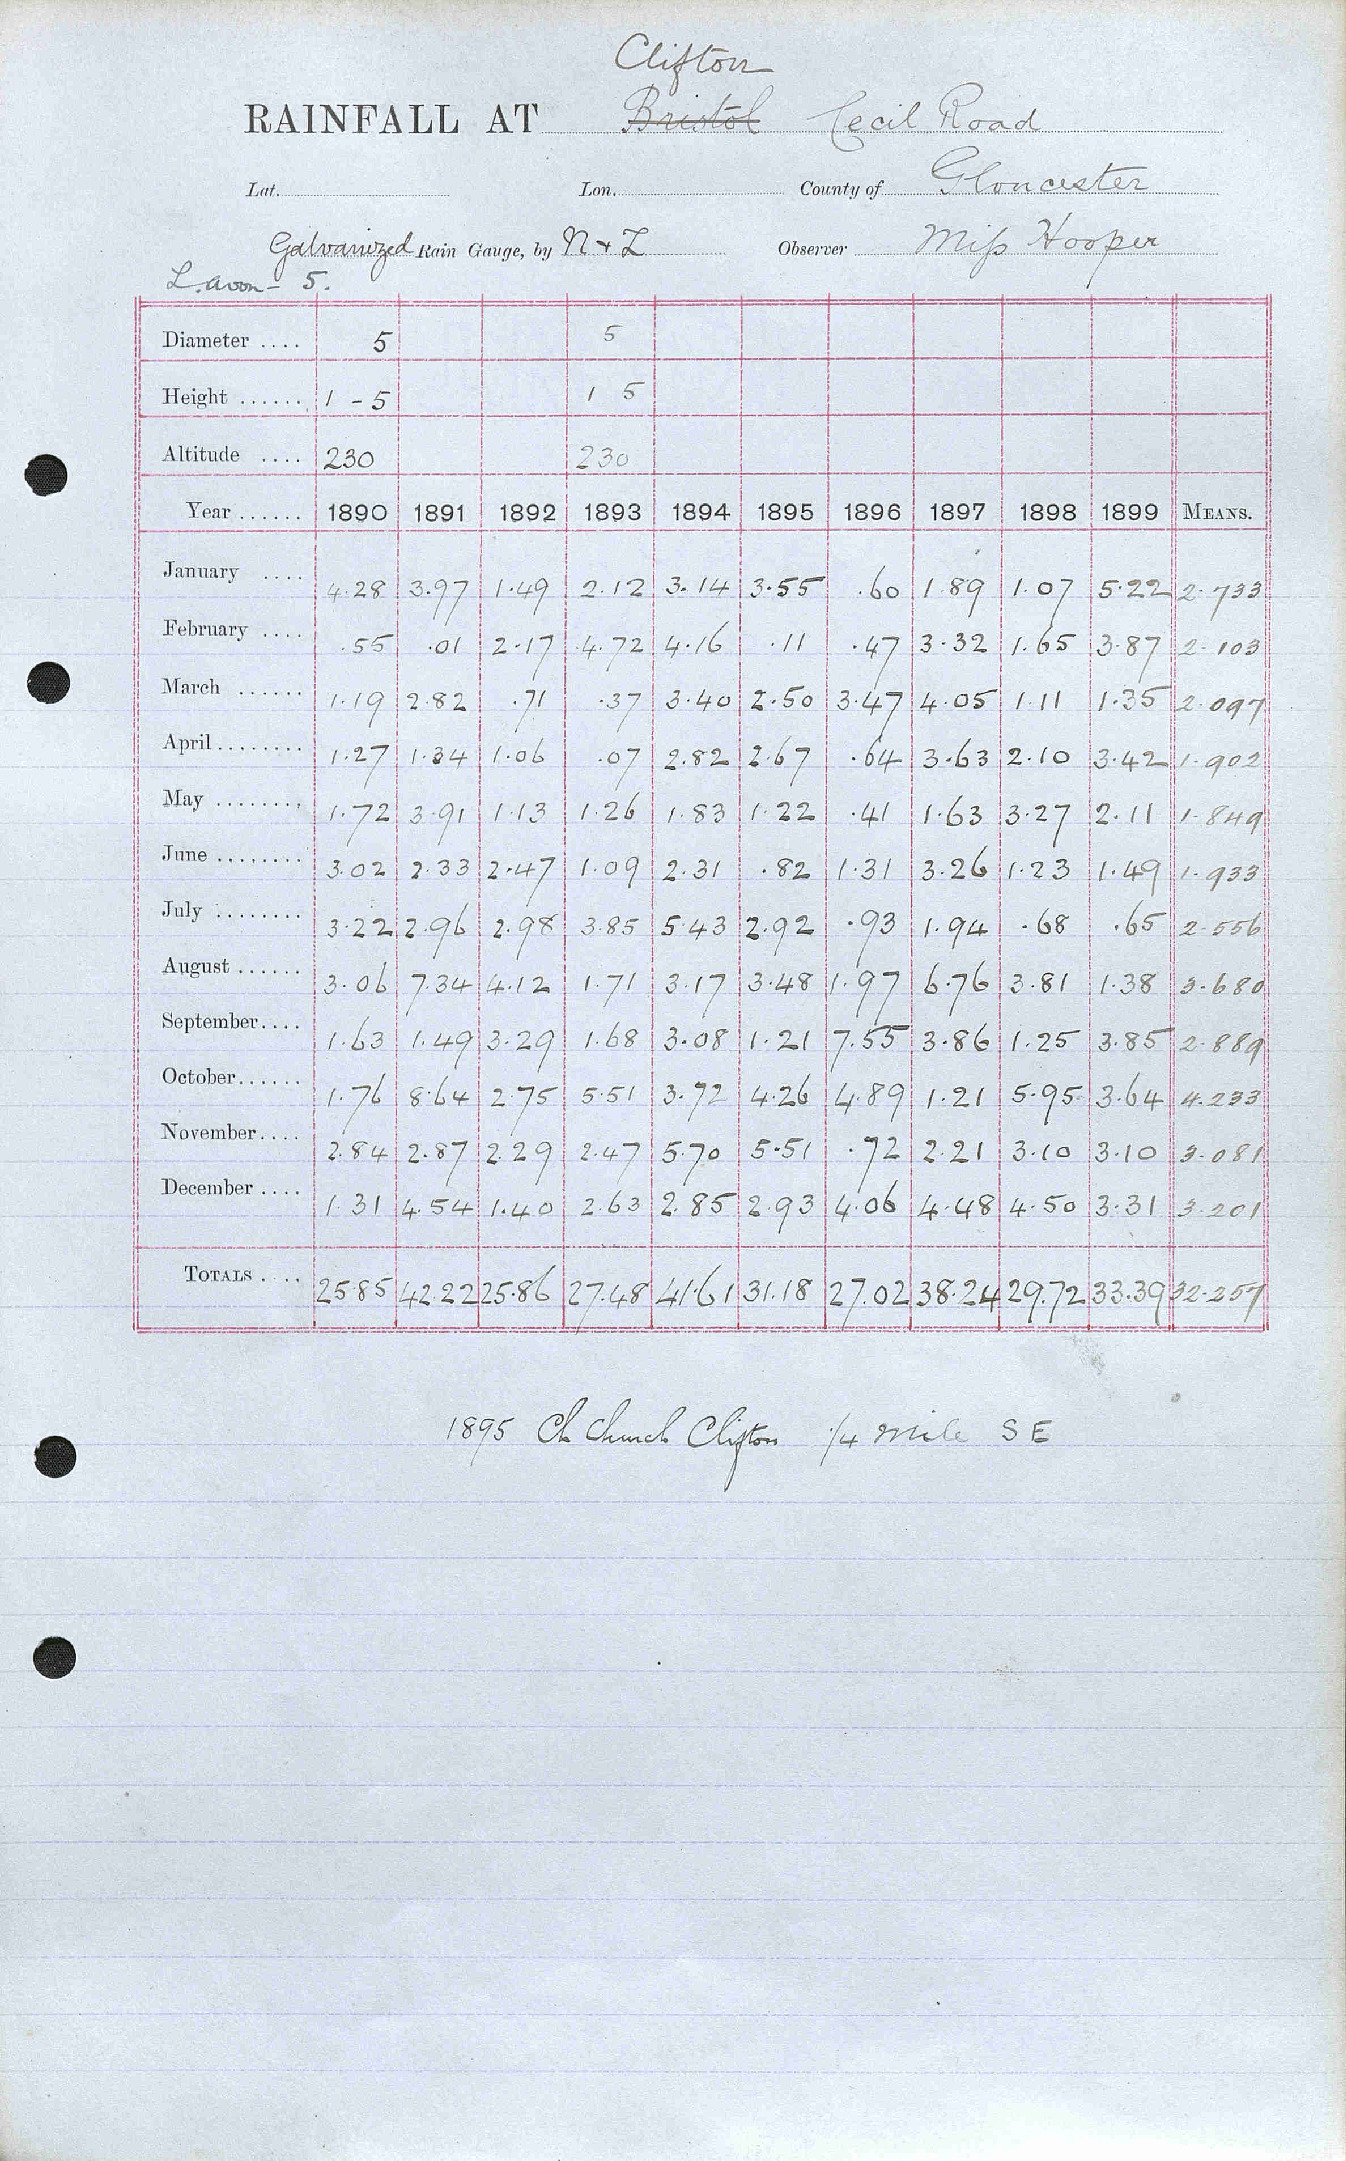 Clifton
RAINFALL AT Bristol Cecil Road
Lat. Lon. County of Gloucester
Galvanized Rain Gauge, by N + Z Observer Miss Hooper
L. avon - 5.
Diameter .... 5 5
Height ...... 1 - 5 1 5
Altitude .... 230 230
Year ...... 1890 1891 1892 1893 1894 1895 1896 1897 1898 1899 MEANS.
January .... 4.28 3.97 1.49 2.12 3.14 3.55 .60 1.89 1.07 5.22 2.733
February .... .55 .01 2.17 4.72 4.16 .11 .47 3.32 1.65 3.87 2.103
March ...... 1.19 2.82 .71 .37 3.40 2.50 3.47 4.05 1.11 1.35 2.097
April ........ 1.27 1.34 1.06 .07 2.82 2.67 .64 3.63 2.10 3.42 1.902
May ........ 1.72 3.91 1.13 1.26 1.83 1.22 .41 1.63 3.27 2.11 1.849
June ........ 3.02 2.33 2.47 1.09 2.31 .82 1.31 3.26 1.23 1.49 1.933
July ........ 3.22 2.96 2.98 3.85 5.43 2.92 .93 1.94 .68 .65 2.556
August ...... 3.06 7.34 4.12 1.71 3.17 3.48 1.97 6.76 3.81 1.38 3.680
September.... 1.63 1.49 3.29 1.68 3.08 1.21 7.55 3.86 1.25 3.85 2.889
October...... 1.76 8.64 2.75 5.51 3.72 4.26 4.89 1.21 5.95 3.64 4.233
November.... 2.84 2.87 2.29 2.47 5.70 5.51 .72 2.21 3.10 3.10 3.081
December .... 1.31 4.54 1.40 2.63 2.85 2.93 4.06 4.48 4.50 3.31 3.201
TOTALS .... 25.85 42.22 25.86 27.48 41.61 31.18 27.02 38.24 29.72 33.39 32.257
1895 Ch Church Clifton 1/4 mile S E